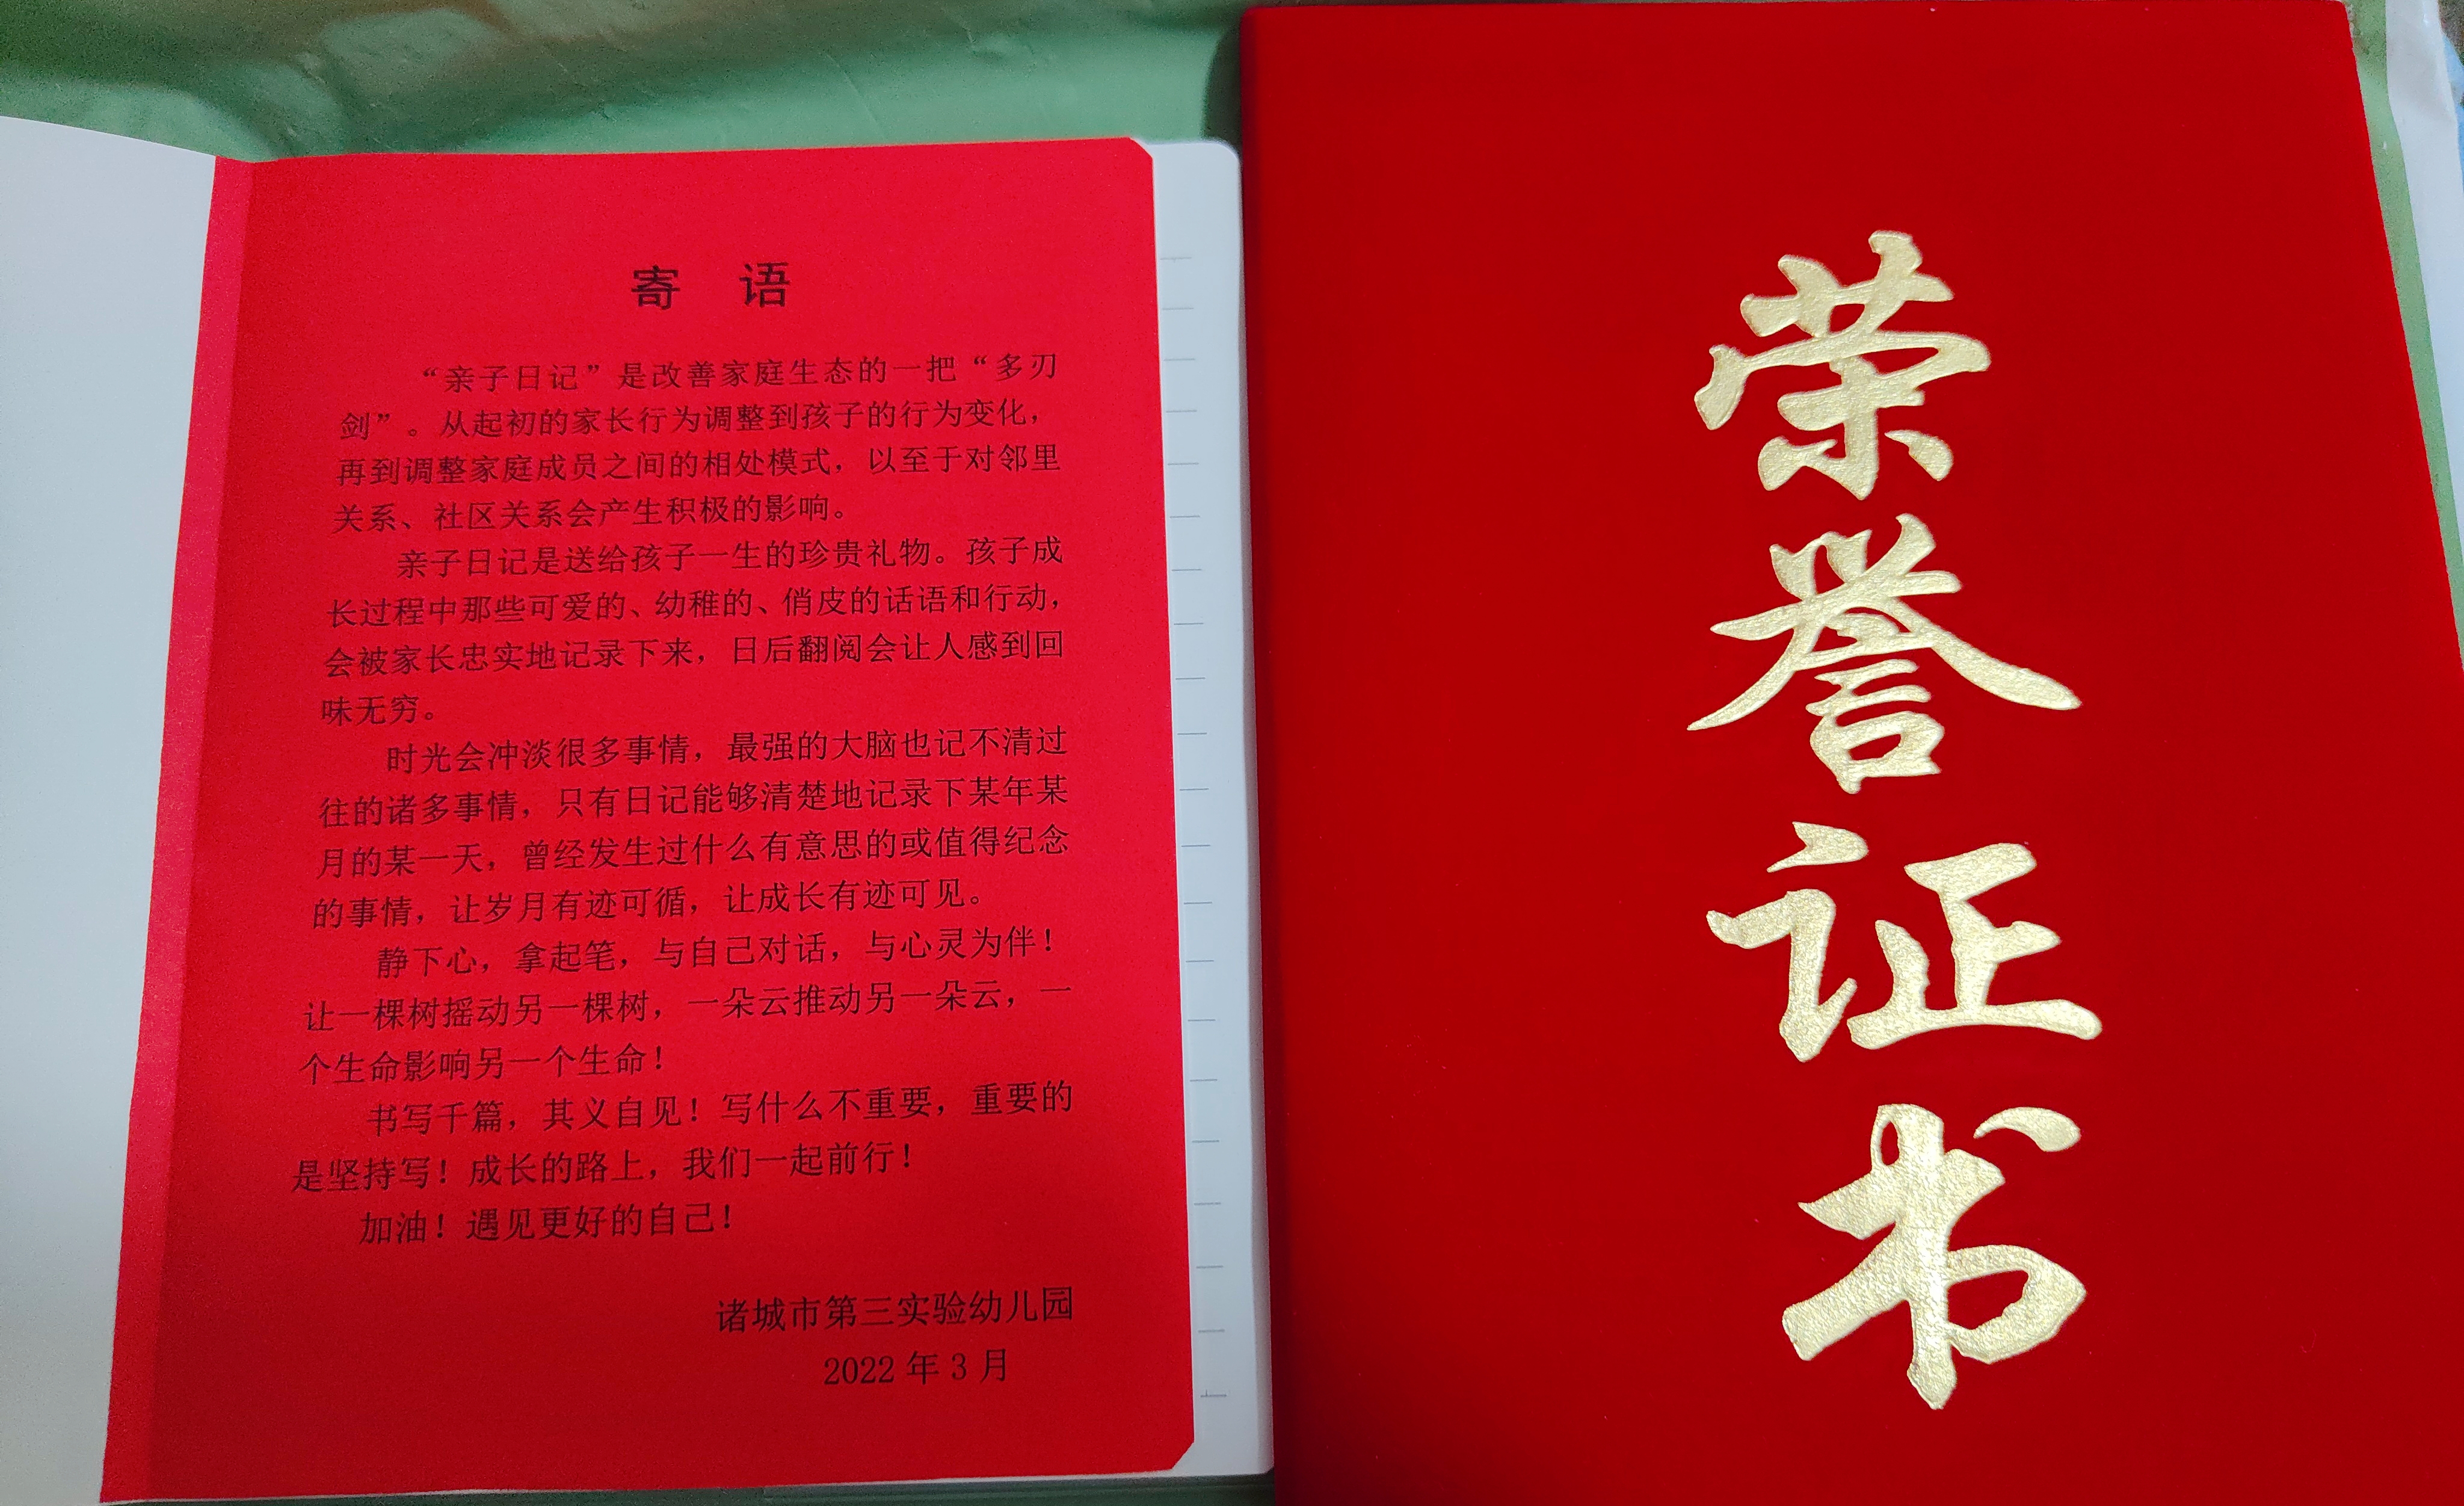 寄 语
“亲子日记”是改善家庭生态的一把“多刃
剑”。从起初的家长行为调整到孩子的行为变化，
再到调整家庭成员之间的相处模式，以至于对邻里
关系、社区关系会产生积极的影响。
亲子日记是送给孩子一生的珍贵礼物。孩子成
长过程中那些可爱的、幼稚的、俏皮的话语和行动，
会被家长忠实地记录下来，日后翻阅会让人感到回
味无穷。
时光会冲淡很多事情，最强的大脑也记不清过
往的诸多事情，只有日记能够清楚地记录下某年某
月的某一天，曾经发生过什么有意思的或值得纪念
的事情，让岁月有迹可循，让成长有迹可见。
静下心，拿起笔，与自己对话，与心灵为伴！
让一棵树摇动另一棵树，一朵云推动另一朵云，一
个生命影响另一个生命！
书写千篇，其义自见！写什么不重要，重要的
是坚持写！成长的路上，我们一起前行！
加油！遇见更好的自己！
诸城市第三实验幼儿园
2022 年 3 月
荣誉证书